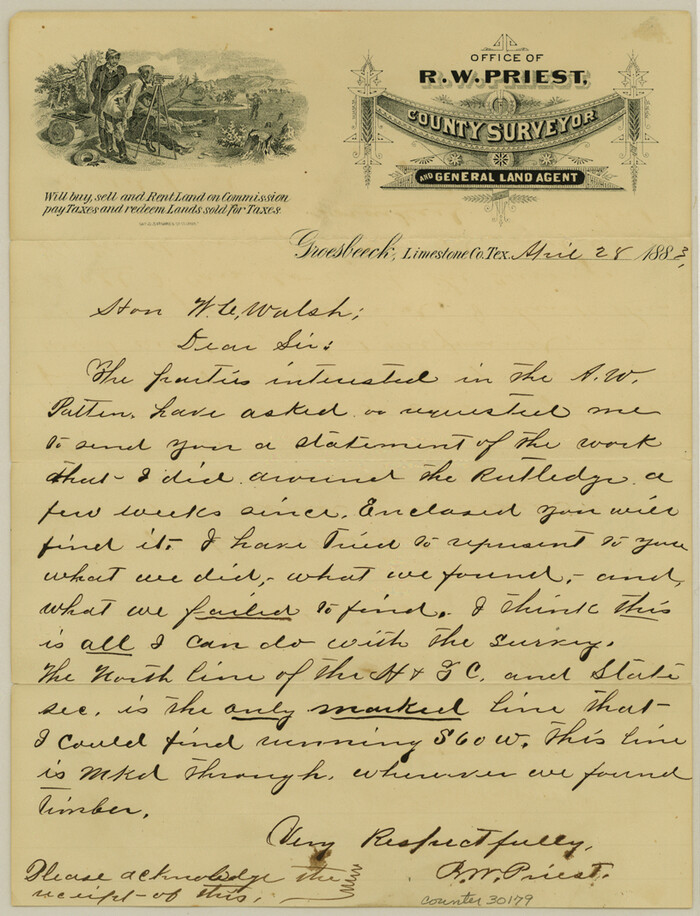 OFFICE OF
R.W. PRIEST,
COUNTY SURVEYOR
AND GENERAL LAND AGENT
Will buy, sell and Rent Land on Commission
pay Taxes and redeem Lands sold for Taxes.
Groesbeeck, Limestone Co. Tex. April 28 1883,
Hon W. C. Walsh;
Dear Sir:
The parties interested in the A. W.
Patten, have asked or requested me
to send you a statement of the work
that I did around the Rutledge a
few weeks since. Enclosed you will
find it. I have tried to represent to you
what we did, - what we found, - and,
what we failed to find. I think this
is all I can do with the survey.
The North line of the H & G C. and State
sec. is the only marked line that
I could find running S 60 W. This line
is mkd through, wherever we found
timber.
Very Respectfully,
R. W. Priest.
Please acknoledge the
receipt of this.
counter 30179